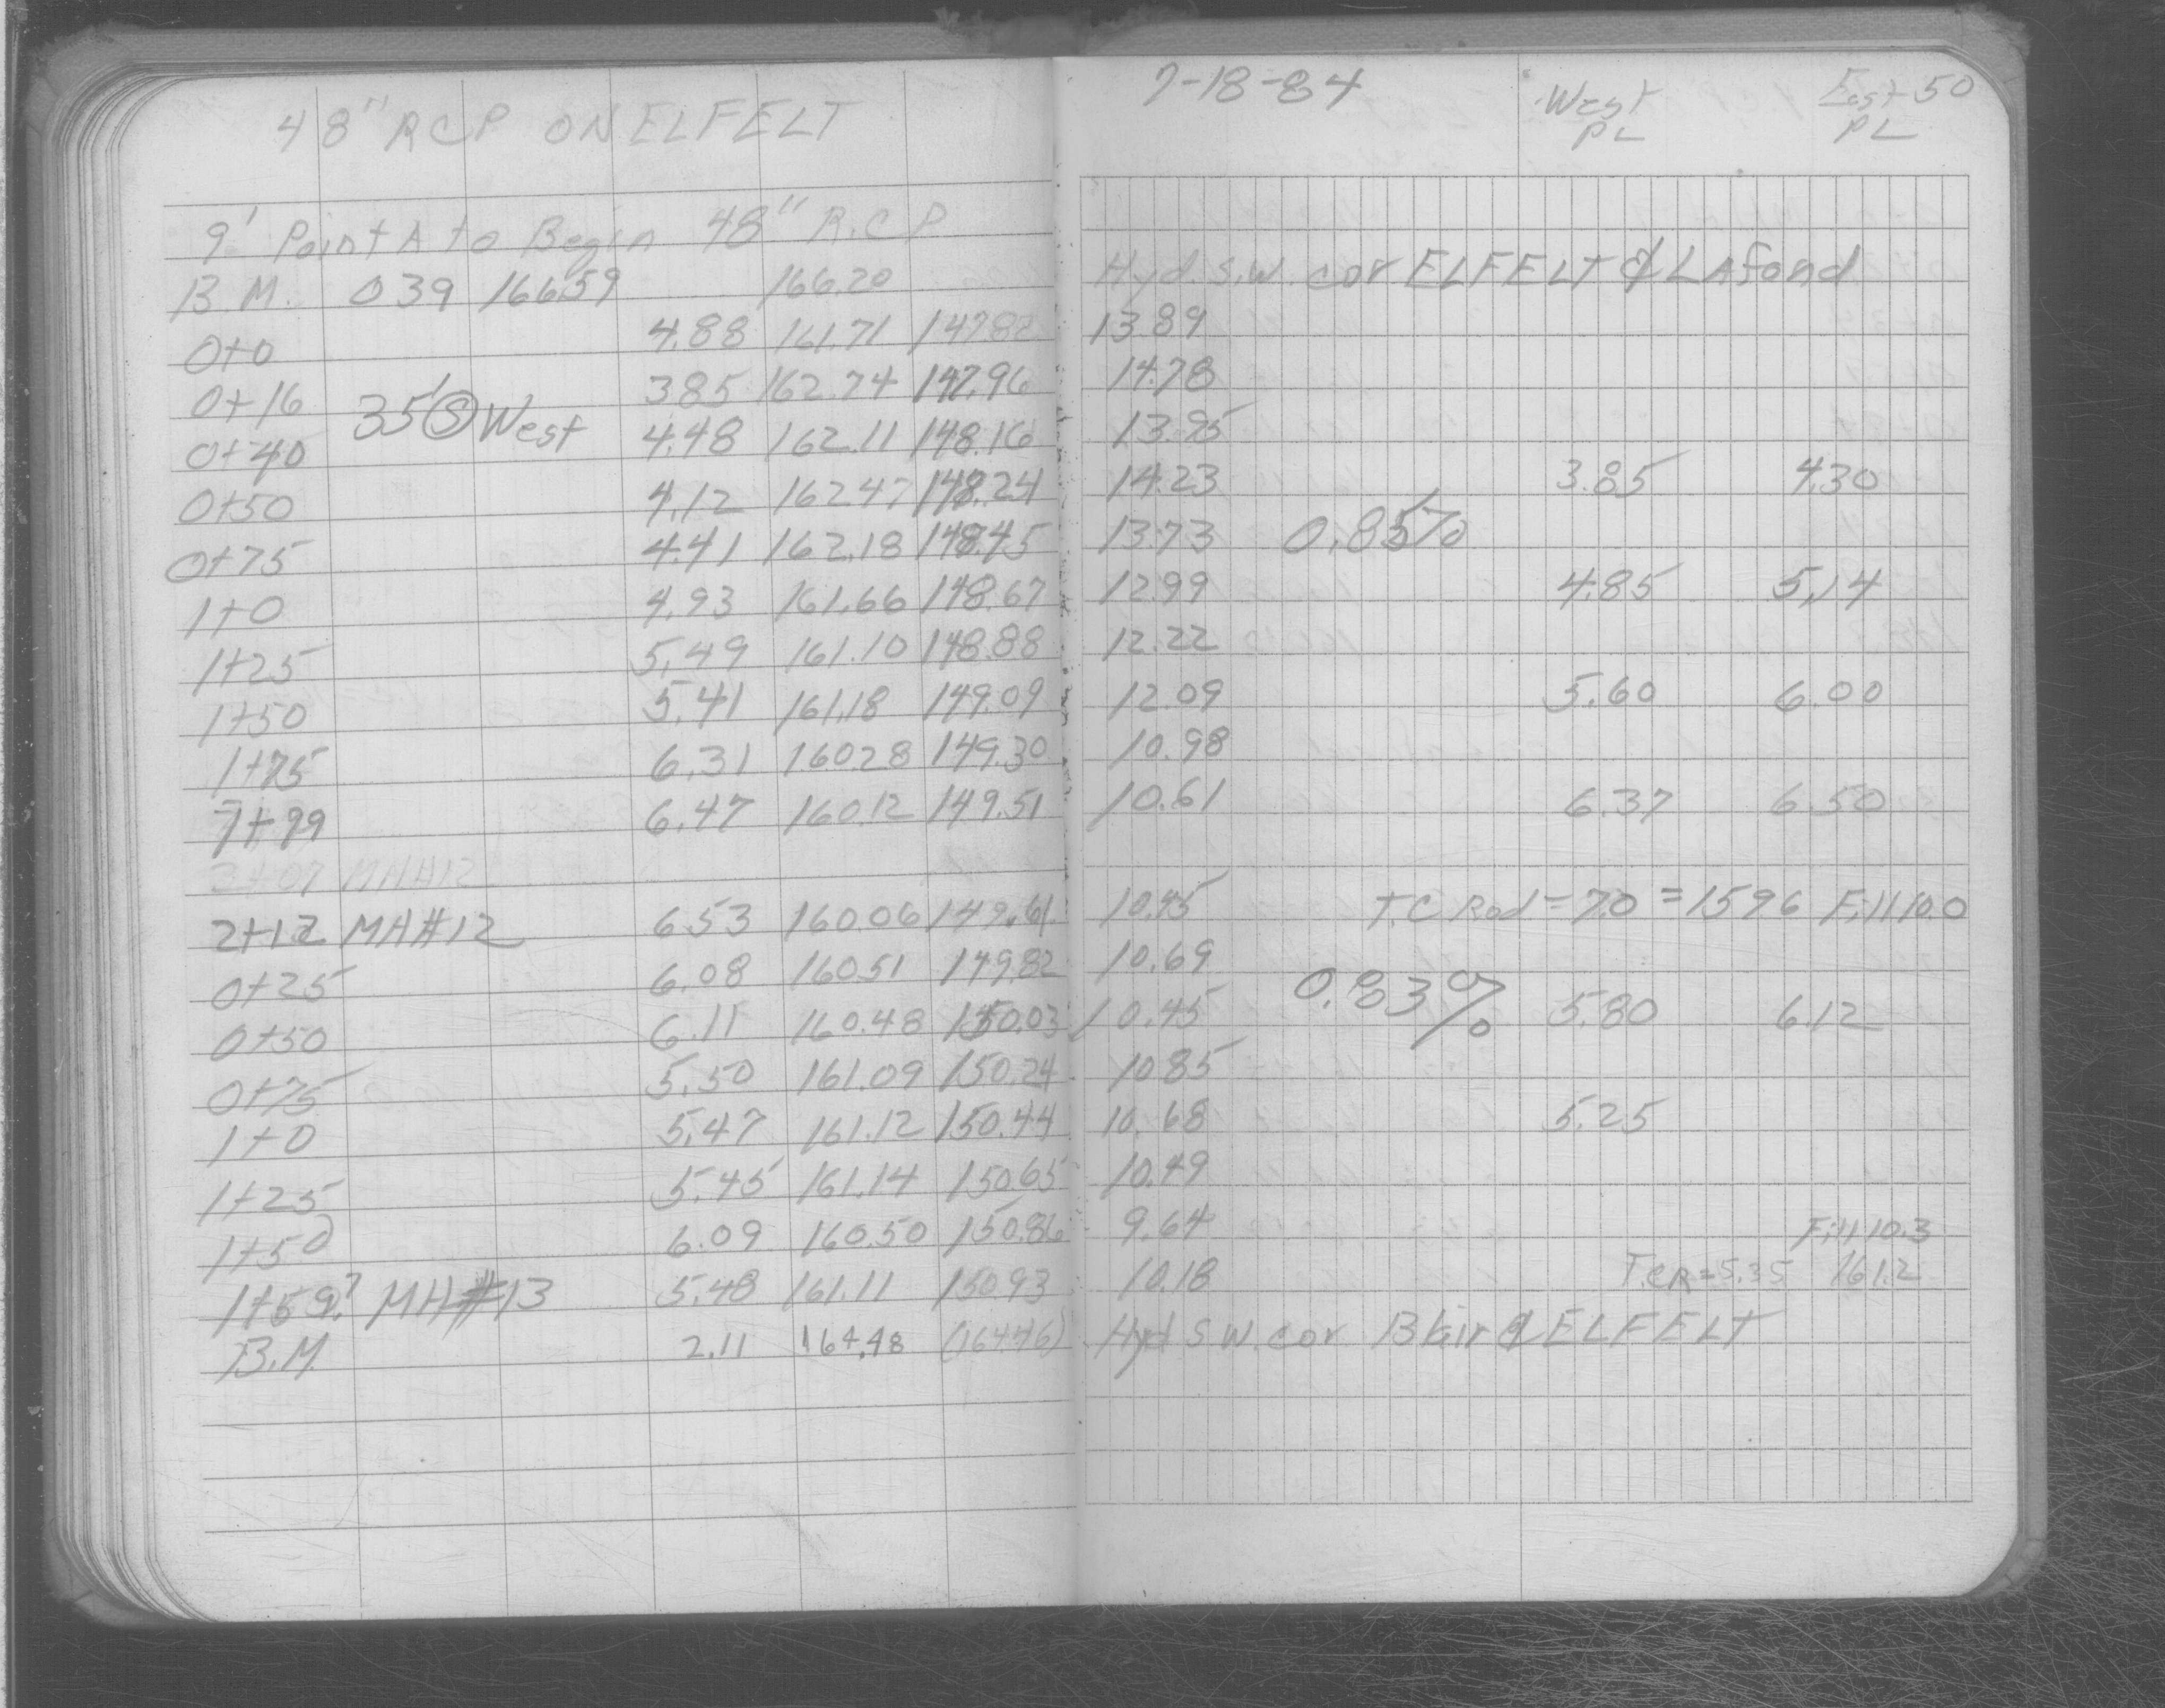 48" RCP ON ELFELT 7-18-84 West PL East PL 50
9' Point A to Begin 48" R.C.P
B.M. 039 16659 166.20 Hyd. S.W. cor ELFELT & LAfond
0+0 4.88 161.71 147.82 13.89
0+16 3.85 162.74 147.96 14.78
35' S West
0+40 4.48 162.11 148.16 13.95
0+50 4.12 162.47 148.24 14.23 3.85 4.30
0+75 4.41 162.18 148.45 13.73 0.85%
1+0 4.93 161.66 148.67 12.99 4.85 5.14
1+25 5.49 161.10 148.88 12.22
1+50 5.41 161.18 149.09 12.09 5.60 6.00
1+75 6.31 160.28 149.30 10.98
1+99 6.47 160.12 149.51 10.61 6.37 6.50
2+07 MH#12
2+12 MH#12 6.53 160.06 149.61 10.45 T.C Rod = 7.0 = 159.6 Fill 10.0
0+25 6.08 160.51 149.82 10.69
0+50 6.11 160.48 150.03 10.45 0.83% 5.80 6.12
0+75 5.50 161.09 150.24 10.85
1+0 5.47 161.12 150.44 10.68 5.25
1+25 5.45 161.14 150.65 10.49
1+50 6.09 160.50 150.86 9.64 Fill 10.3
1+59? MH#13 5.48 161.11 150.93 10.18 T.C.R = 5.35 161.2
B.M. 2.11 164.48 (164.46) Hyd S W. cor Blair & ELFELT